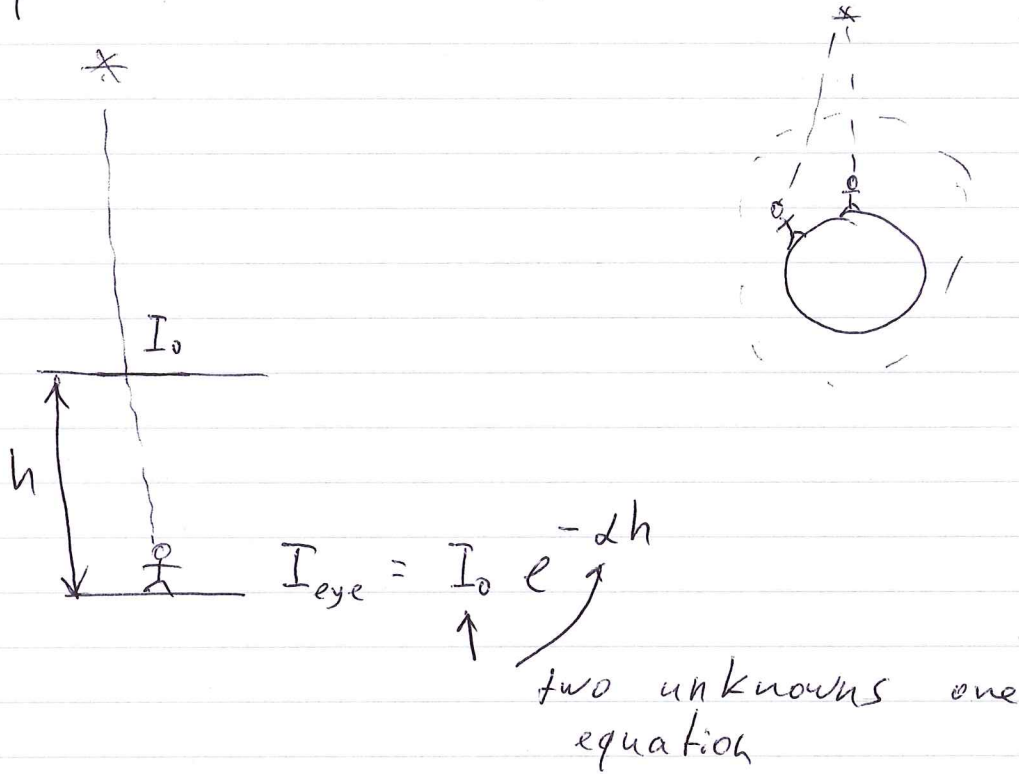 I₀
h
I_eye = I₀ e^{-αh}
two unknowns one
equation